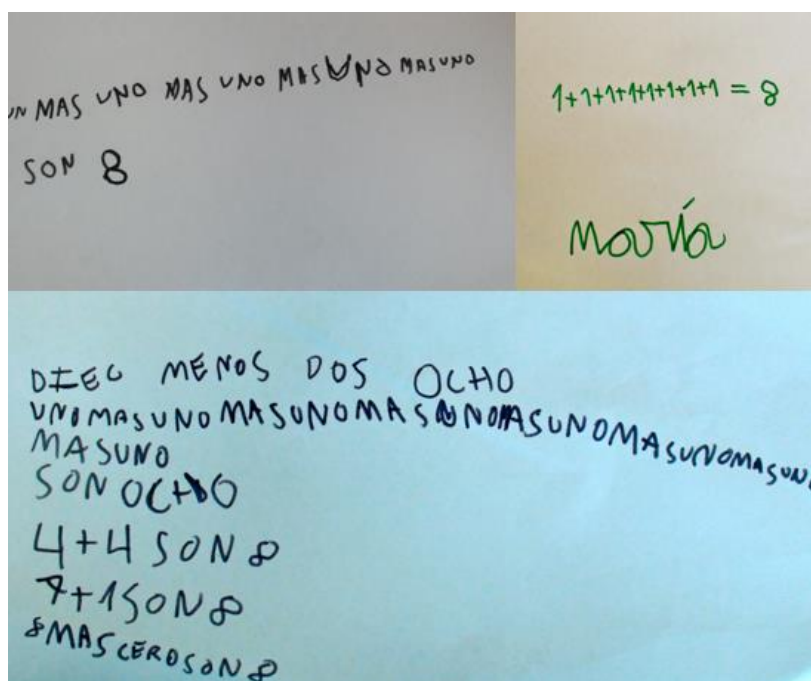 UN MAS UNO MAS UNO MAS UNO MAS UNO
SON 8
1+1+1+1+1+1+1+1 = 8
María
DIEC MENOS DOS OCHO
UNOMASUNOMASUNOMASUNOMASUNOMASUNOMASUNO
MASUNO
SON OCHO
4+4 SON 8
7+1SON 8
8MASCEROSON 8